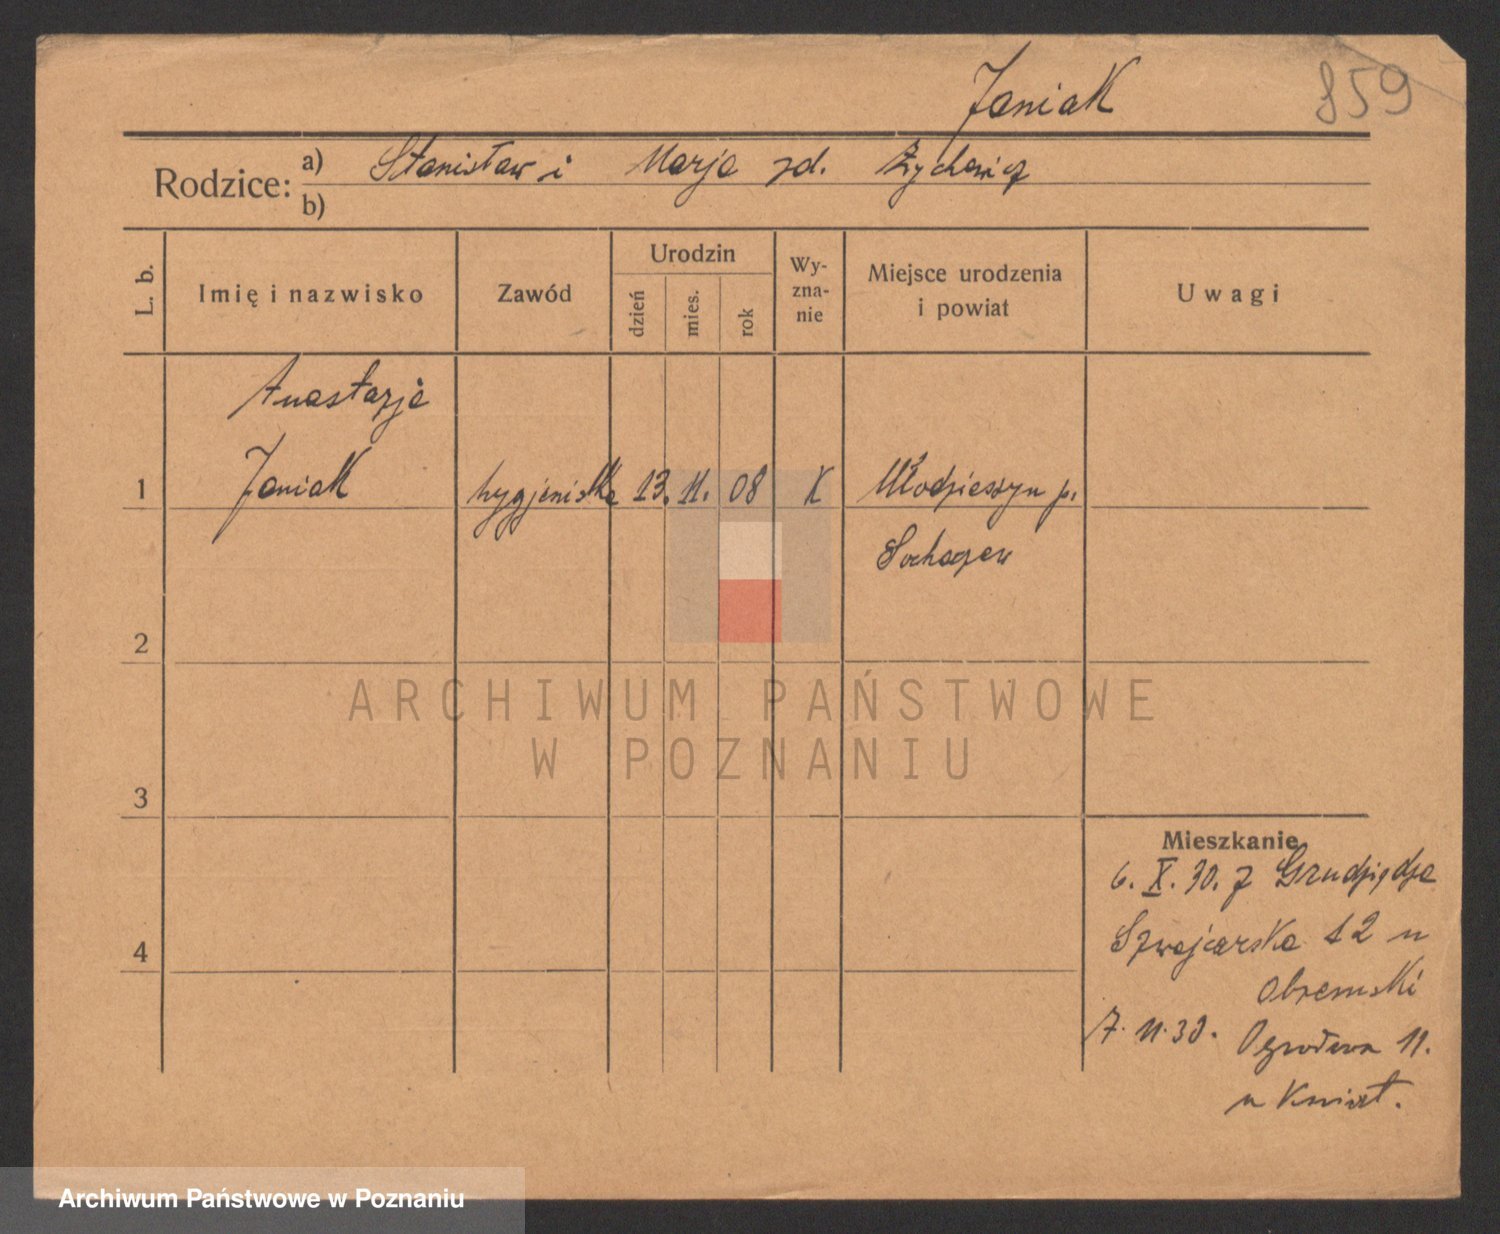 Janiak
859
Rodzice:
a) Stanisław i Marja zd. Żychowicz
b)
L. b.
Imię i nazwisko
Zawód
Urodzin
dzień
mies.
rok
Wy-
zna-
nie
Miejsce urodzenia
i powiat
Uwagi
Anastazja
1 Janiak hygjenistka 13. 11. 08 K Młodzieszyn p.
Sochaczew
2
3
4
Mieszkanie
6. X. 30. z Grudziądza
Szwajcarska 12 u
Obremski
7. 11. 30. Ogrodowa 11.
u
ARCHIWUM PAŃSTWOWE
W POZNANIU
Archiwum Państwowe w Poznaniu